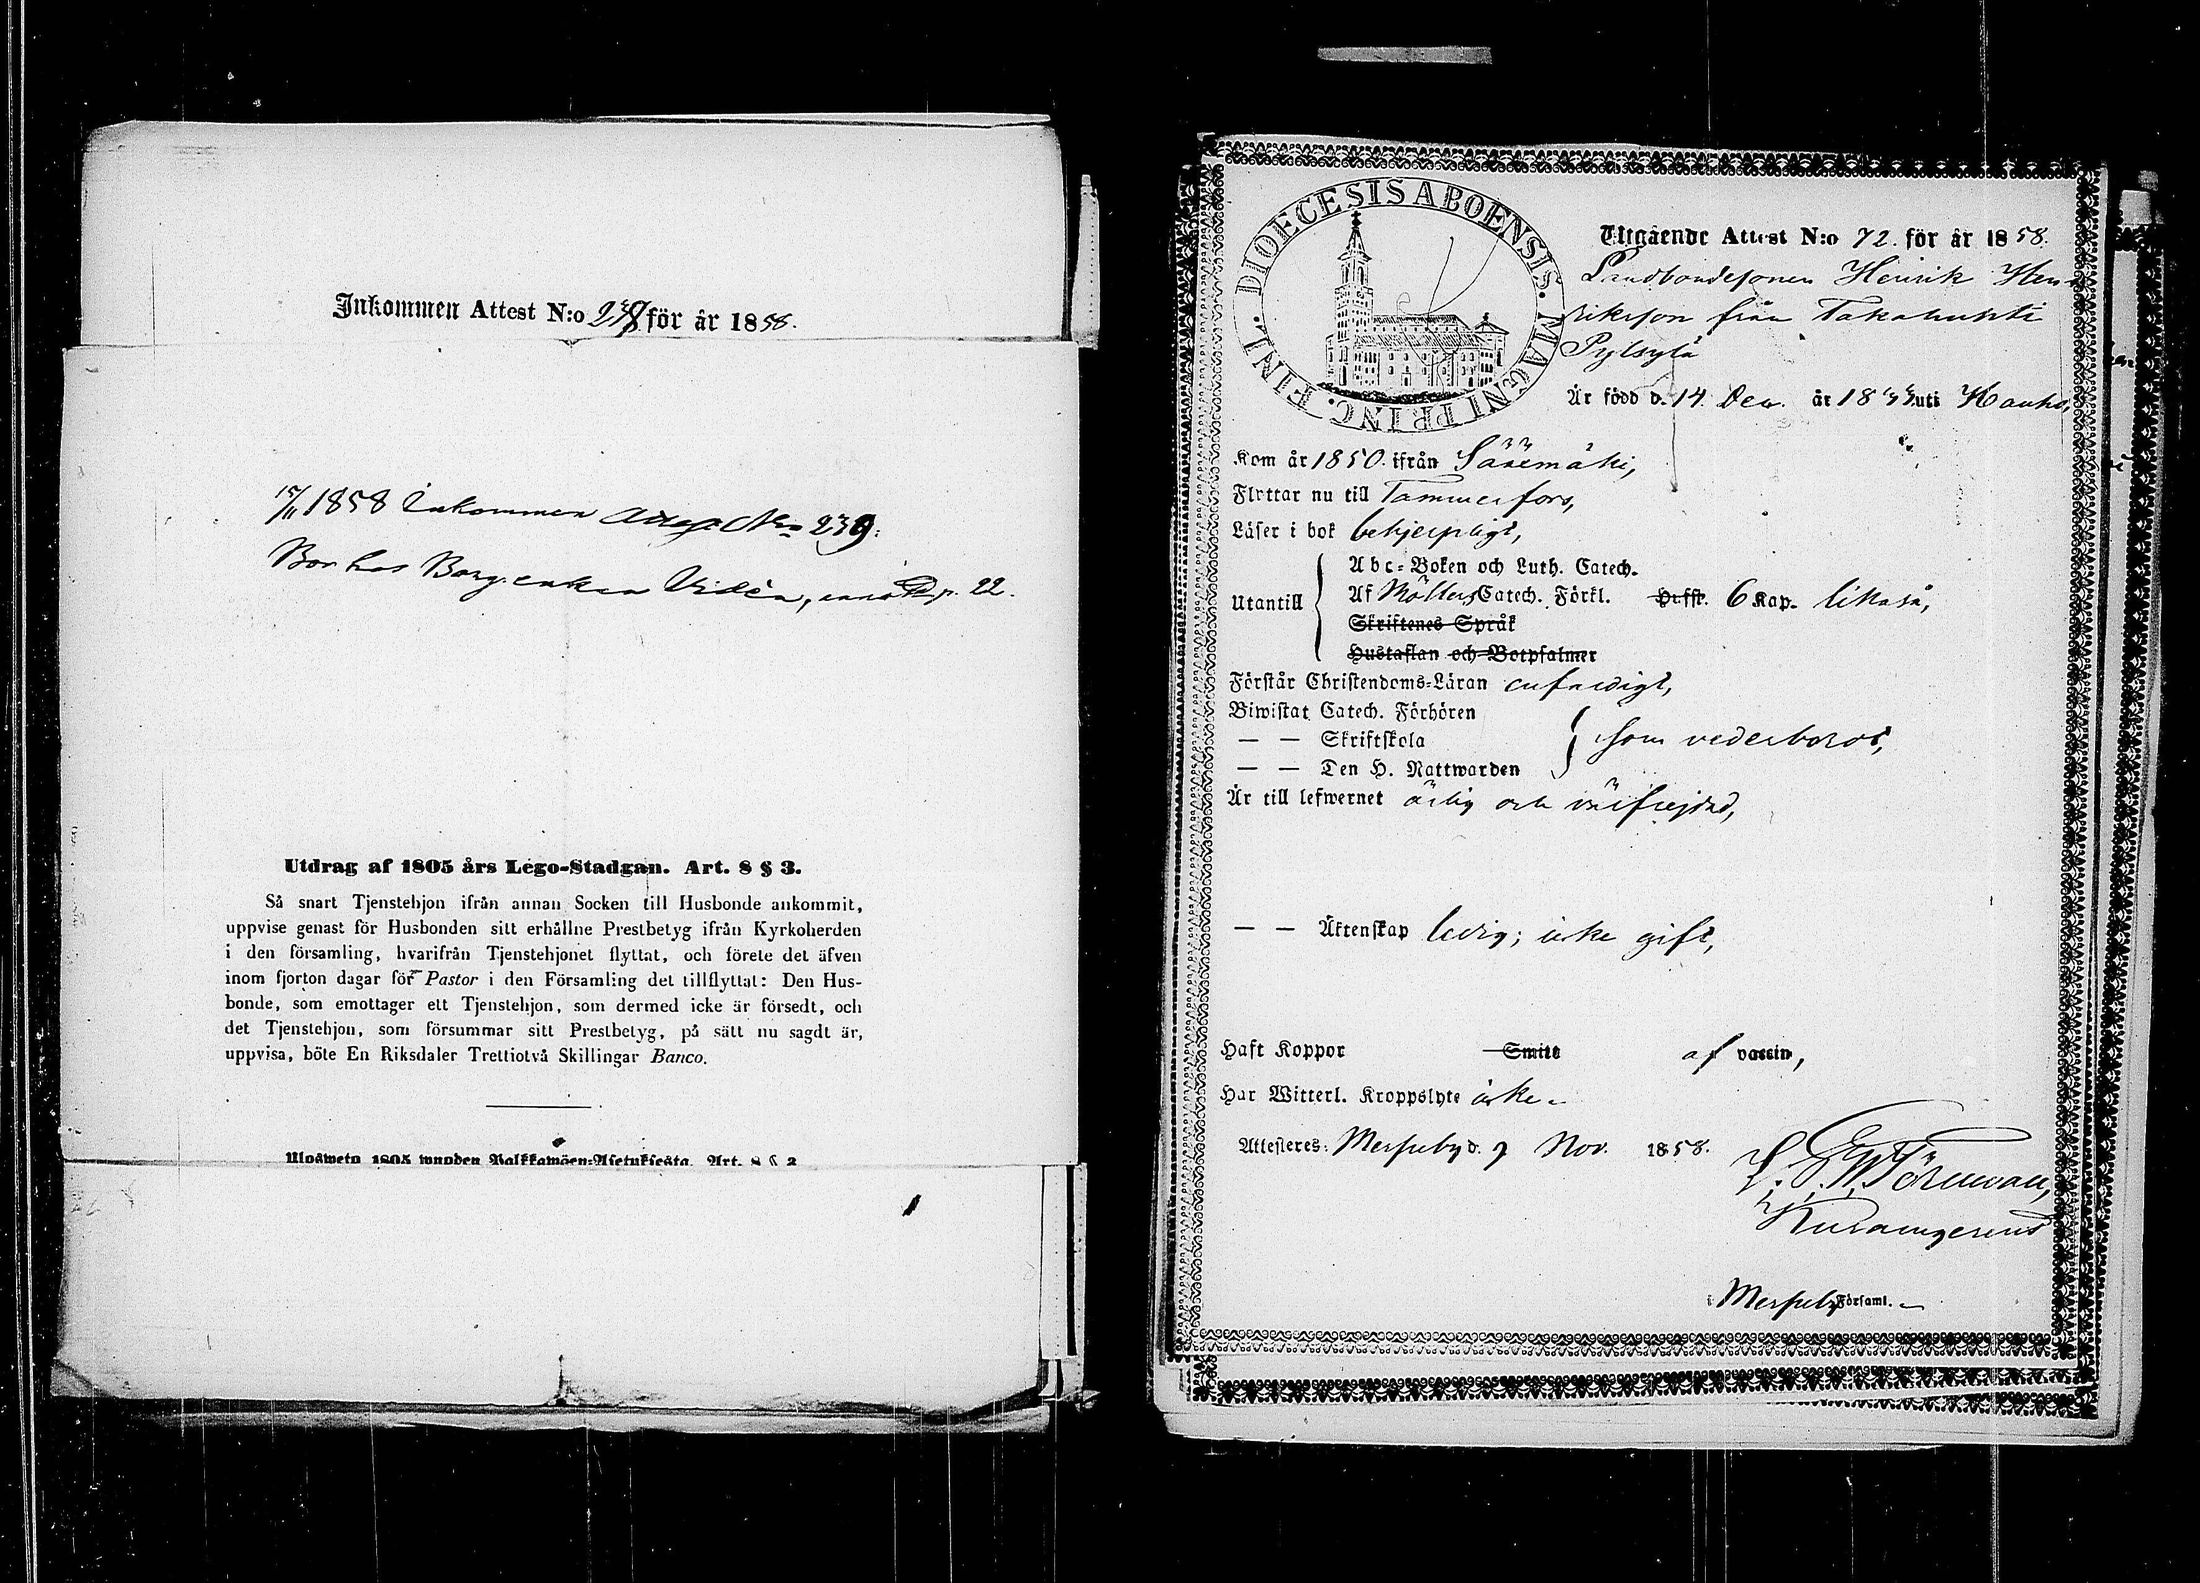 Inkommen Attest N:o för år 1858.
17/11 1858 Inkommen Attest No 239.
Bor hos Borg. enkan Vidén, p. 22.
Utdrag af 1805 års Lego-Stadgan. Art. 8 § 3.
Så snart Tjenstehjon ifrån annan Socken till Husbonde ankommit,
uppvise genast för Husbonden sitt erhållne Prestbetyg ifrån Kyrkoherden
i den församling, hvarifrån Tjenstehjonet flyttat, och förete det äfven
inom fjorton dagar för Pastor i den Församling det tillflyttat: Den Hus-
bonde, som emottager ett Tjenstehjon, som dermed icke är försedt, och
det Tjenstehjon, som försummar sitt Prestbetyg, på sätt nu sagdt är,
uppvisa, böte En Riksdaler Trettiotvå Skillingar Banco.
Ulosweto 1805 wuoden Palkkawäen-Asetuksesta. Art. 8 § 3
DIOECESIS ABOENSIS. MAGNI PRINC. FINL.
Utgående Attest N:o 72. för år 1858.
Landbondesonen Henrik Hen-
riksson från Takahuhti
Pylsylä
Är född d. 14 Dec. år 18 uti Hauho,
Kom år 1850. ifrån Sääxmäki,
Flyttar nu till Tammerfors,
Läser i bok behjerpligt,
Abc-Boken och Luth. Catech.
Utantill Af Möllers Catech. Förkl. Hufst. 6 Kap. likaså,
Skriftenes Språk
Hustaflan och Botpsalmer
Förstår Christendoms-Läran enfaldigt,
Biwistat Catech. Förhören
— — Skriftskola som vederborot,
— — Den H. Nattwarden
Är till lefwernet ärlig och välfrejdad,
— — Äktenskap ledig; icke gift,
Haft Koppor Smitt af vaccin,
Har Witterl. Kroppslyte icke.
Attesteres: Messuby d. 9 Nov. 1858.
Törnwall,
i Messuby Församl.